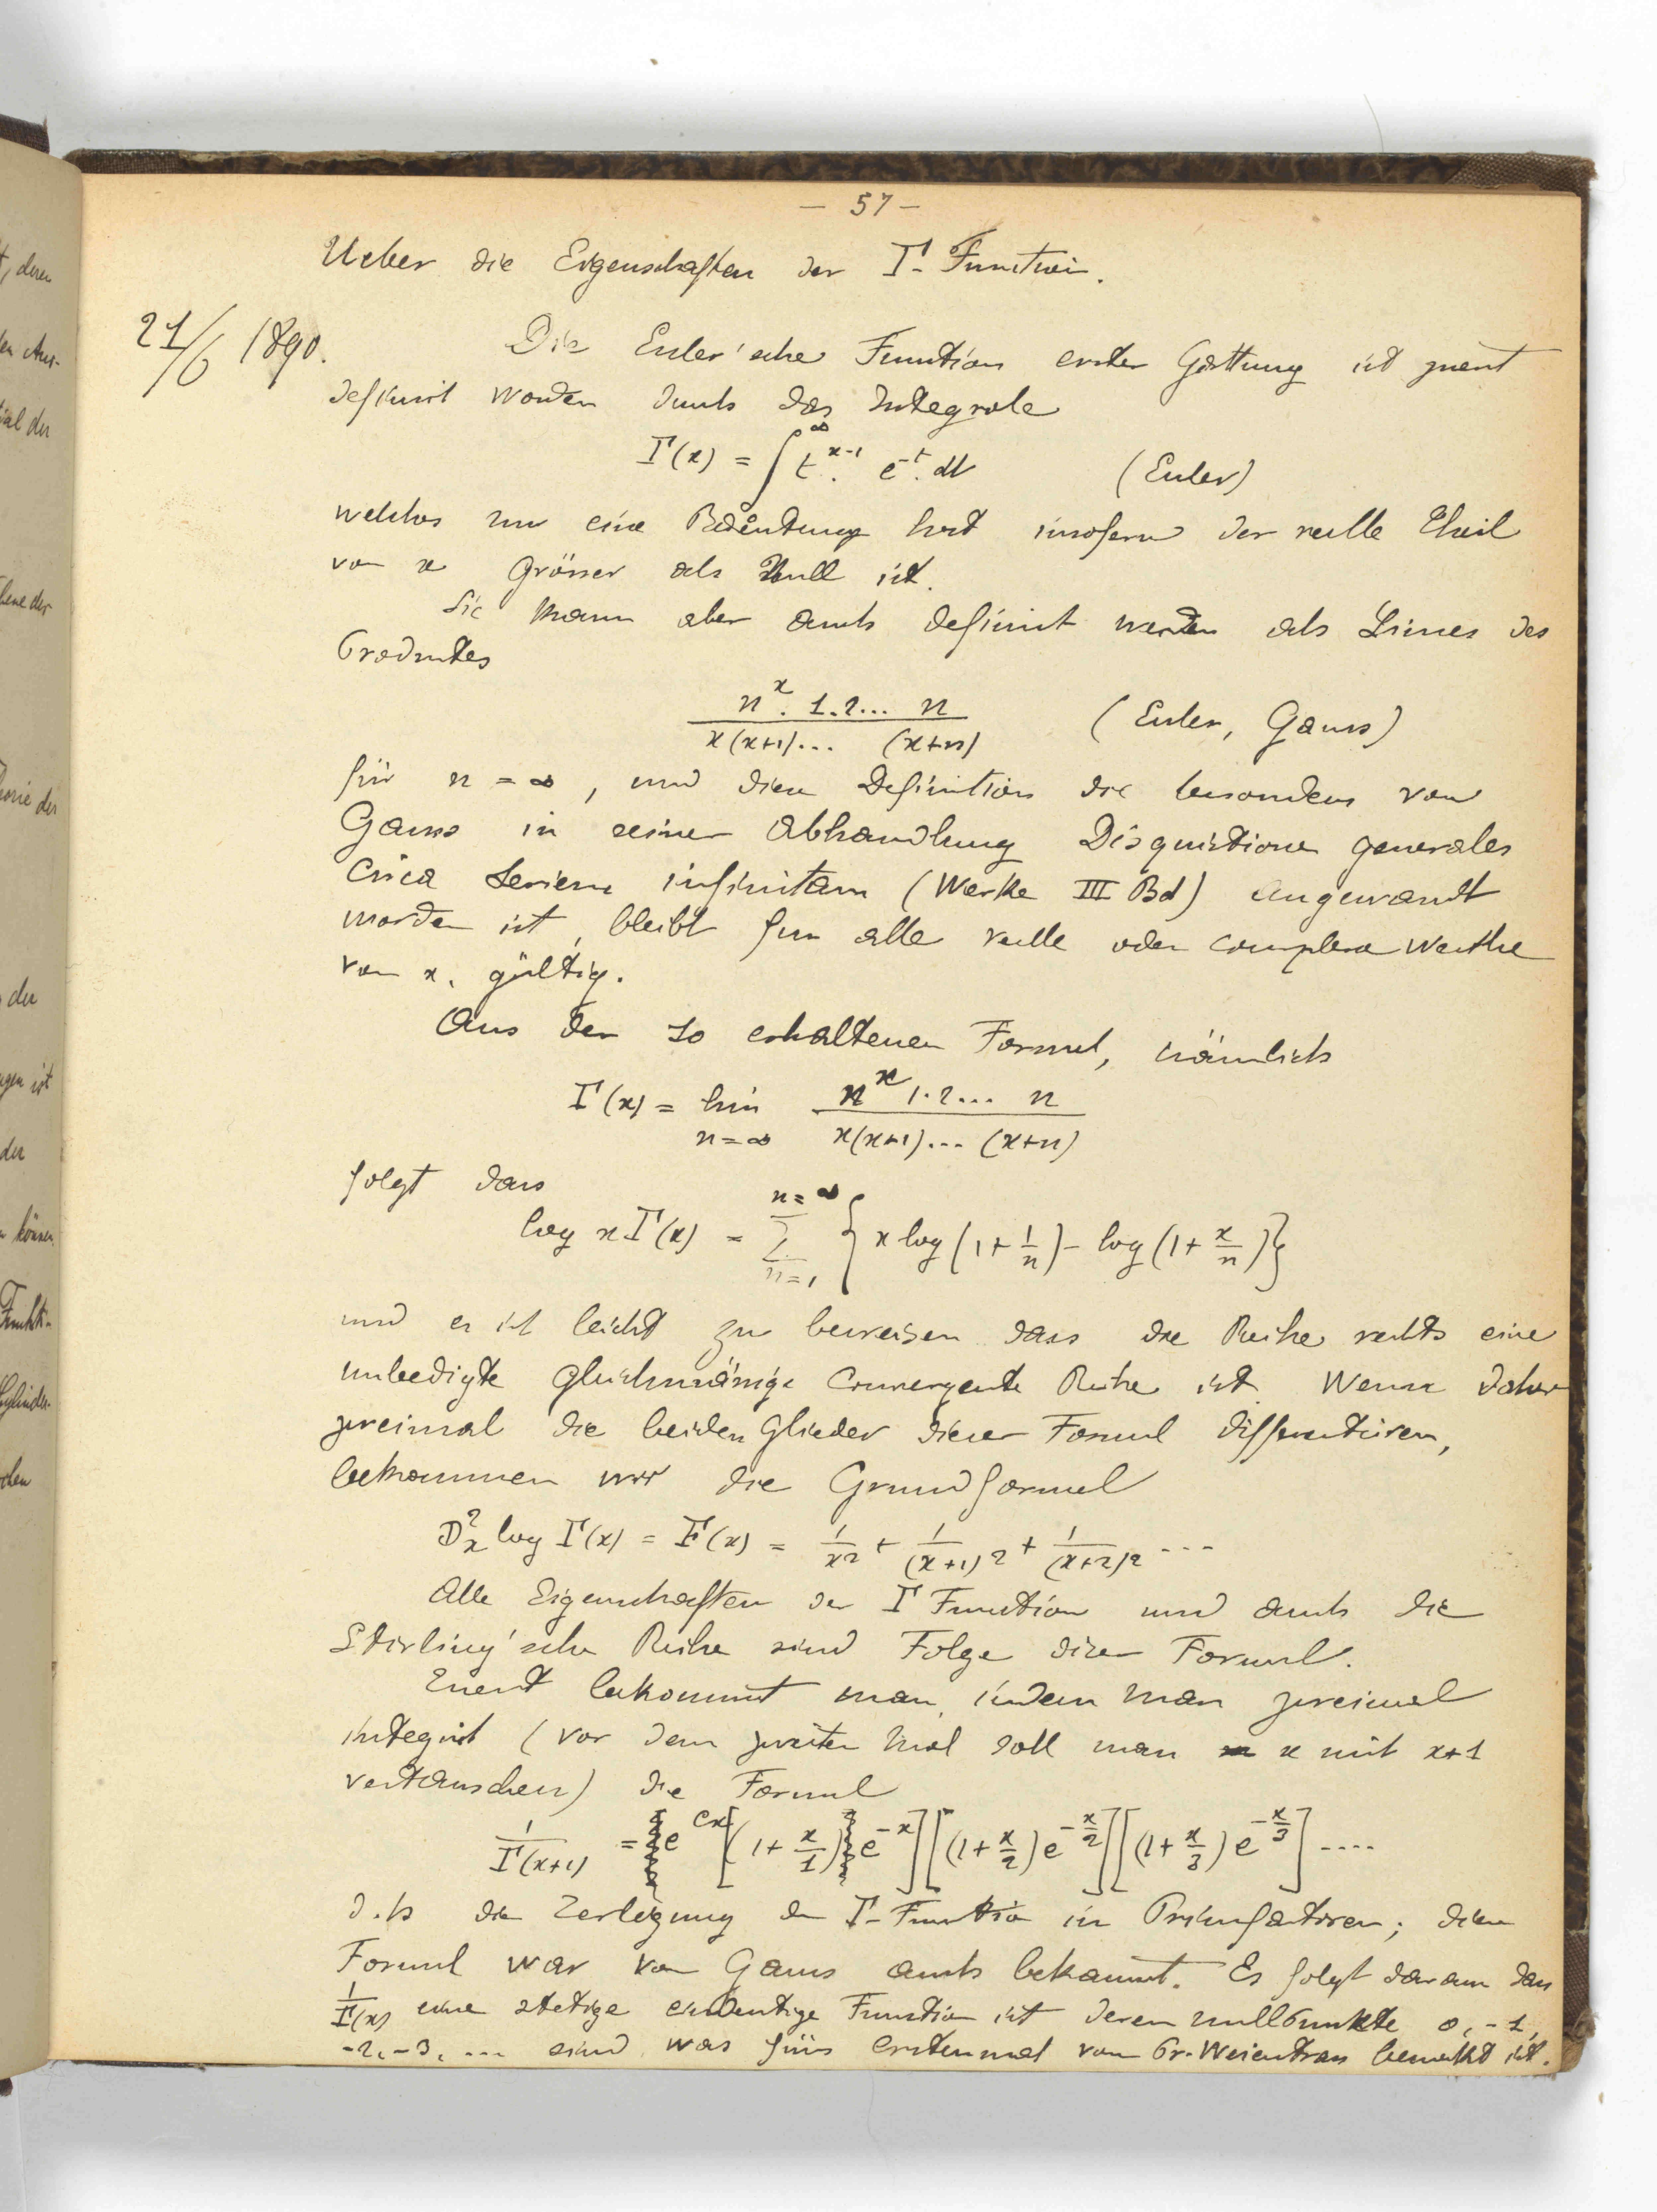 — 57 —
Ueber die Eigenschaften der Γ-Function.
21/6 1890.
Die Euler'sche Function erster Gattung ist zuerst
definirt worden durch das Integrale
Γ(x) = ∫₀^∞ t^{x-1}. e^{-t}. dt (Euler)
welches nur eine Bedeutung hat insofern der reelle Theil
von x grösser als Null ist.
Sie kann aber auch definirt werden als Limes des
Productes
n^x. 1.2... n / x(x+1)... (x+n) (Euler, Gauss)
für n = ∞, und diese Definition die besonders von
Gauss in seiner Abhandlung Disquisitiones generales
circa seriem infinitam (Werke III Bd) angewandt
worden ist, bleibt für alle reelle oder complexe Werthe
von x, gültig.
Aus der so erhaltenen Formel, nämlich
Γ(x) = lim_{n=∞} n^x 1.2... n / x(x+1)... (x+n)
folgt dass
log xΓ(x) = Σ_{n=1}^{n=∞} {x log(1+1/n) - log(1+x/n)}
und es ist leicht zu beweisen dass die Reihe rechts eine
unbedigte gleichmässige convergente Reihe ist. Wenn daher
zweimal die beiden Glieder dieser Formel differentiiren,
bekommen wir die Grundformel
D²_x log Γ(x) = F(x) = 1/x² + 1/(x+1)² + 1/(x+2)² ...
Alle Eigenschaften der Γ Function und auch die
Stirling'sche Reihe sind Folge dieser Formel.
Zuerst bekommt man, indem man zweimal
integrirt (vor dem zweiten Mal soll man x mit x+1
vertauschen) die Formel
1/Γ(x+1) = e^{Cx}[(1+x/1)e^{-x}][(1+x/2)e^{-x/2}][(1+x/3)e^{-x/3}]....
d.h die Zerlegung der Γ-Function in Primfactoren; diese
Formel war von Gauss auch bekannt. Es folgt daraus dass
1/Γ(x) eine stetige eindeutige Function ist deren Nullpunkte 0, -1,
-2, -3, ... sind was fürs erstenmal von Pr. Weierstrass bemerkt ist.
t, deren
en Aus-
ial der
bene der
orie der
der
ngen ist
der
können
Funkti-
Cylinder-
chen